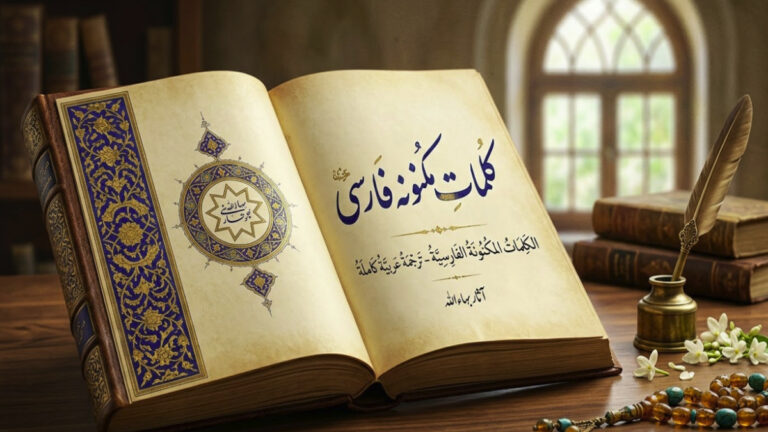 كلمات مكنونه فارسى
الكَلِمَاتُ المَكْنُونَةُ الفَارِسِيَّةُ - تَرْجَمَةٌ عَرَبِيَّةٌ كَامِلَةٌ
آثار بهاء الله